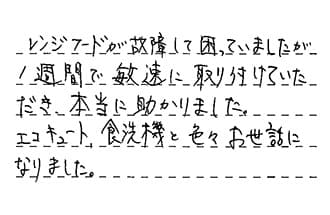 レンジフードが故障して困っていましたが
1週間で敏速に取り付けていた
だき、本当に助かりました。
エコキュート、食洗機と色々お世話に
なりました。